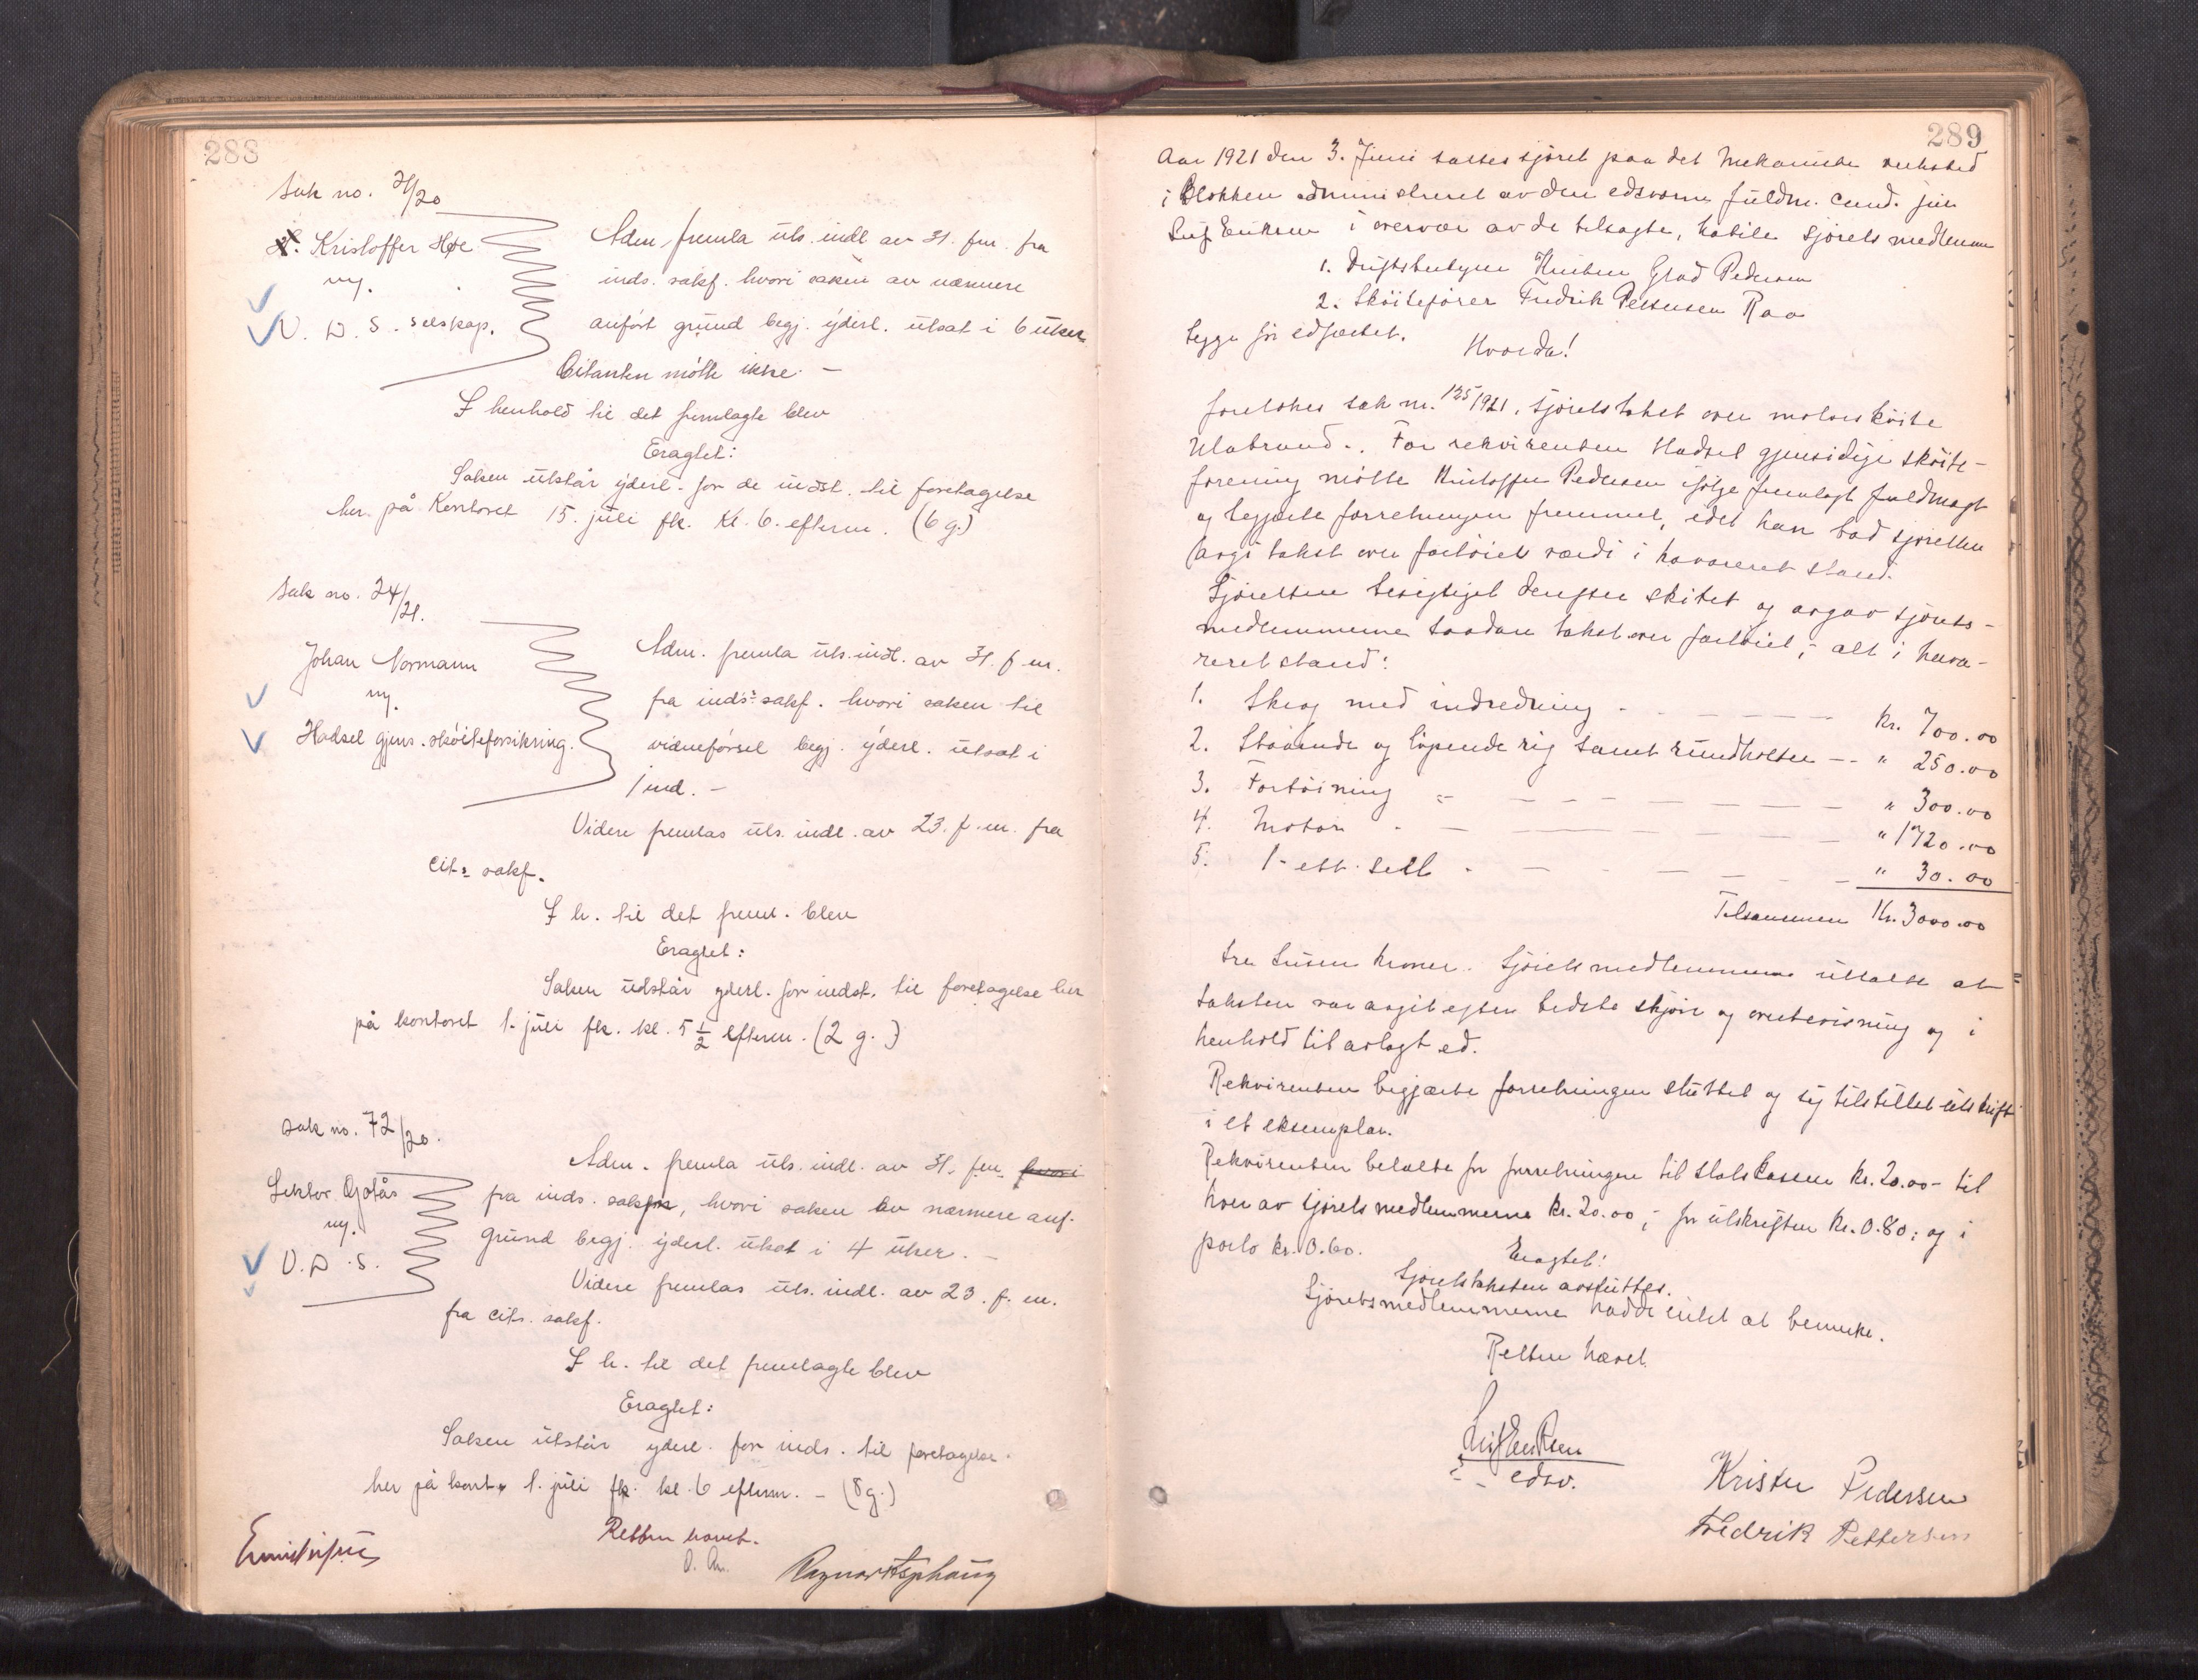 288
Sak no. 71/20
Kristoffer Høe
mj.
V. D. S. selskap.
Adm. fremla uts. indl. av 31. f.m. fra
inds. sakf. hvori saken av nærmere
anført grund begj. yderl. utsat i 6 uker
Citanten møtte ikke. –
I henhold til det fremlagte blev
Eragtet:
Saken utstår yderl. for de indst. til foretagelse
her på Kontoret 15. juli fk. Kl. 6. efterm. (6 g.)
Sak no. 24/21.
Johan Normann
mj.
Hadsel gjens. skøiteforsikring.
Adm. fremla uts. indl. av 31. f.m.
fra inds. sakf. hvori saken til
vidneførsel begj. yderl. utsat i
1 md. –
Videre fremlas uts. indl. av 23. f.m. fra
cit. sakf.
I h. til det freml. blev
Eragtet:
Saken udstår yderl. for indst. til foretagelse her
på kontoret 1. juli fk. kl. 5 1/2 efterm. (2 g.)
Sak no. 72/20.
mj.
V. D. S.
Adm. fremla uts. indl. av 31. f.m. hvori
fra inds. sakf., hvori saken av nærmere anf.
grund begj. yderl. utsat i 4 uker. –
Videre fremlas uts. indl. av 23. f.m.
fra cits. sakf.
I h. til det fremlagte blev
Eragtet:
Saken utstår yderl. for inds. til foretagelse
her på kont. 1. juli fk. kl. 6 efterm. – (8 g.)
Retten hævet.
289
Aar 1921 den 3. Juni sattes sjøret paa det mekaniske verksted
i Blokken administreret av den edsvorne fuldm. cand. jur.
Leif Eriksen i overvær av de tilsagte, habile sjøretsmedlemmer
1. Driftsbestyrer Kristen Grad Pedersen
2. Skøitefører Fredrik Pettersen Raa
begge før edfæstet.
Hvorda!
foretokes sak nr. 125/1921, sjøretstakst over motorskøite
Ulabrand. For rekvirenten Hadsel gjensidige skøite-
forening møtte Kristoffer Pedersen ifølge fremlagt fuldmagt
og begjærte forretningen fremmet, idet han bad sjøretten
avgi takst over fartøiets værdi i havareret stand.
Sjøretten besigtiget derefter skibet og avgav sjørets-
medlemmerne saadan takst over fartøiet, – alt i hava-
reret stand:
1. Skrog med indredning – – – – kr. 700.00
2. Staaende og løpende rig samt rundholter –– " 250.00
3. Fortøining – – – – – – " 300.00
4. Motor – – – – – " 1720.00
5. 1 - ett seil – – – – " 30.00
Tilsammen Kr. 3000.00
tre tusen kroner. Sjøretsmedlemmerne uttalte at
taksten var avgit efter bedste skjøn og overbevisning og i
henhold til avlagt ed.
Rekvirenten begjærte forretningen sluttet og sig tilstillet utskrift
i et eksemplar.
Rekvirenten betalte for forretningen til statskassen kr. 20.00 – til
hver av sjøretsmedlemmerne kr. 20.00; – for utskriften kr. 0.80; og i
porto kr. 0.60.
Eragtet:
Sjøretstaksten avsluttes.
Sjøretsmedlemmerne hadde intet at bemerke.
Retten hævet.
Leif Eriksen
edsv.
Kristen Pedersen
Fredrik Pettersen